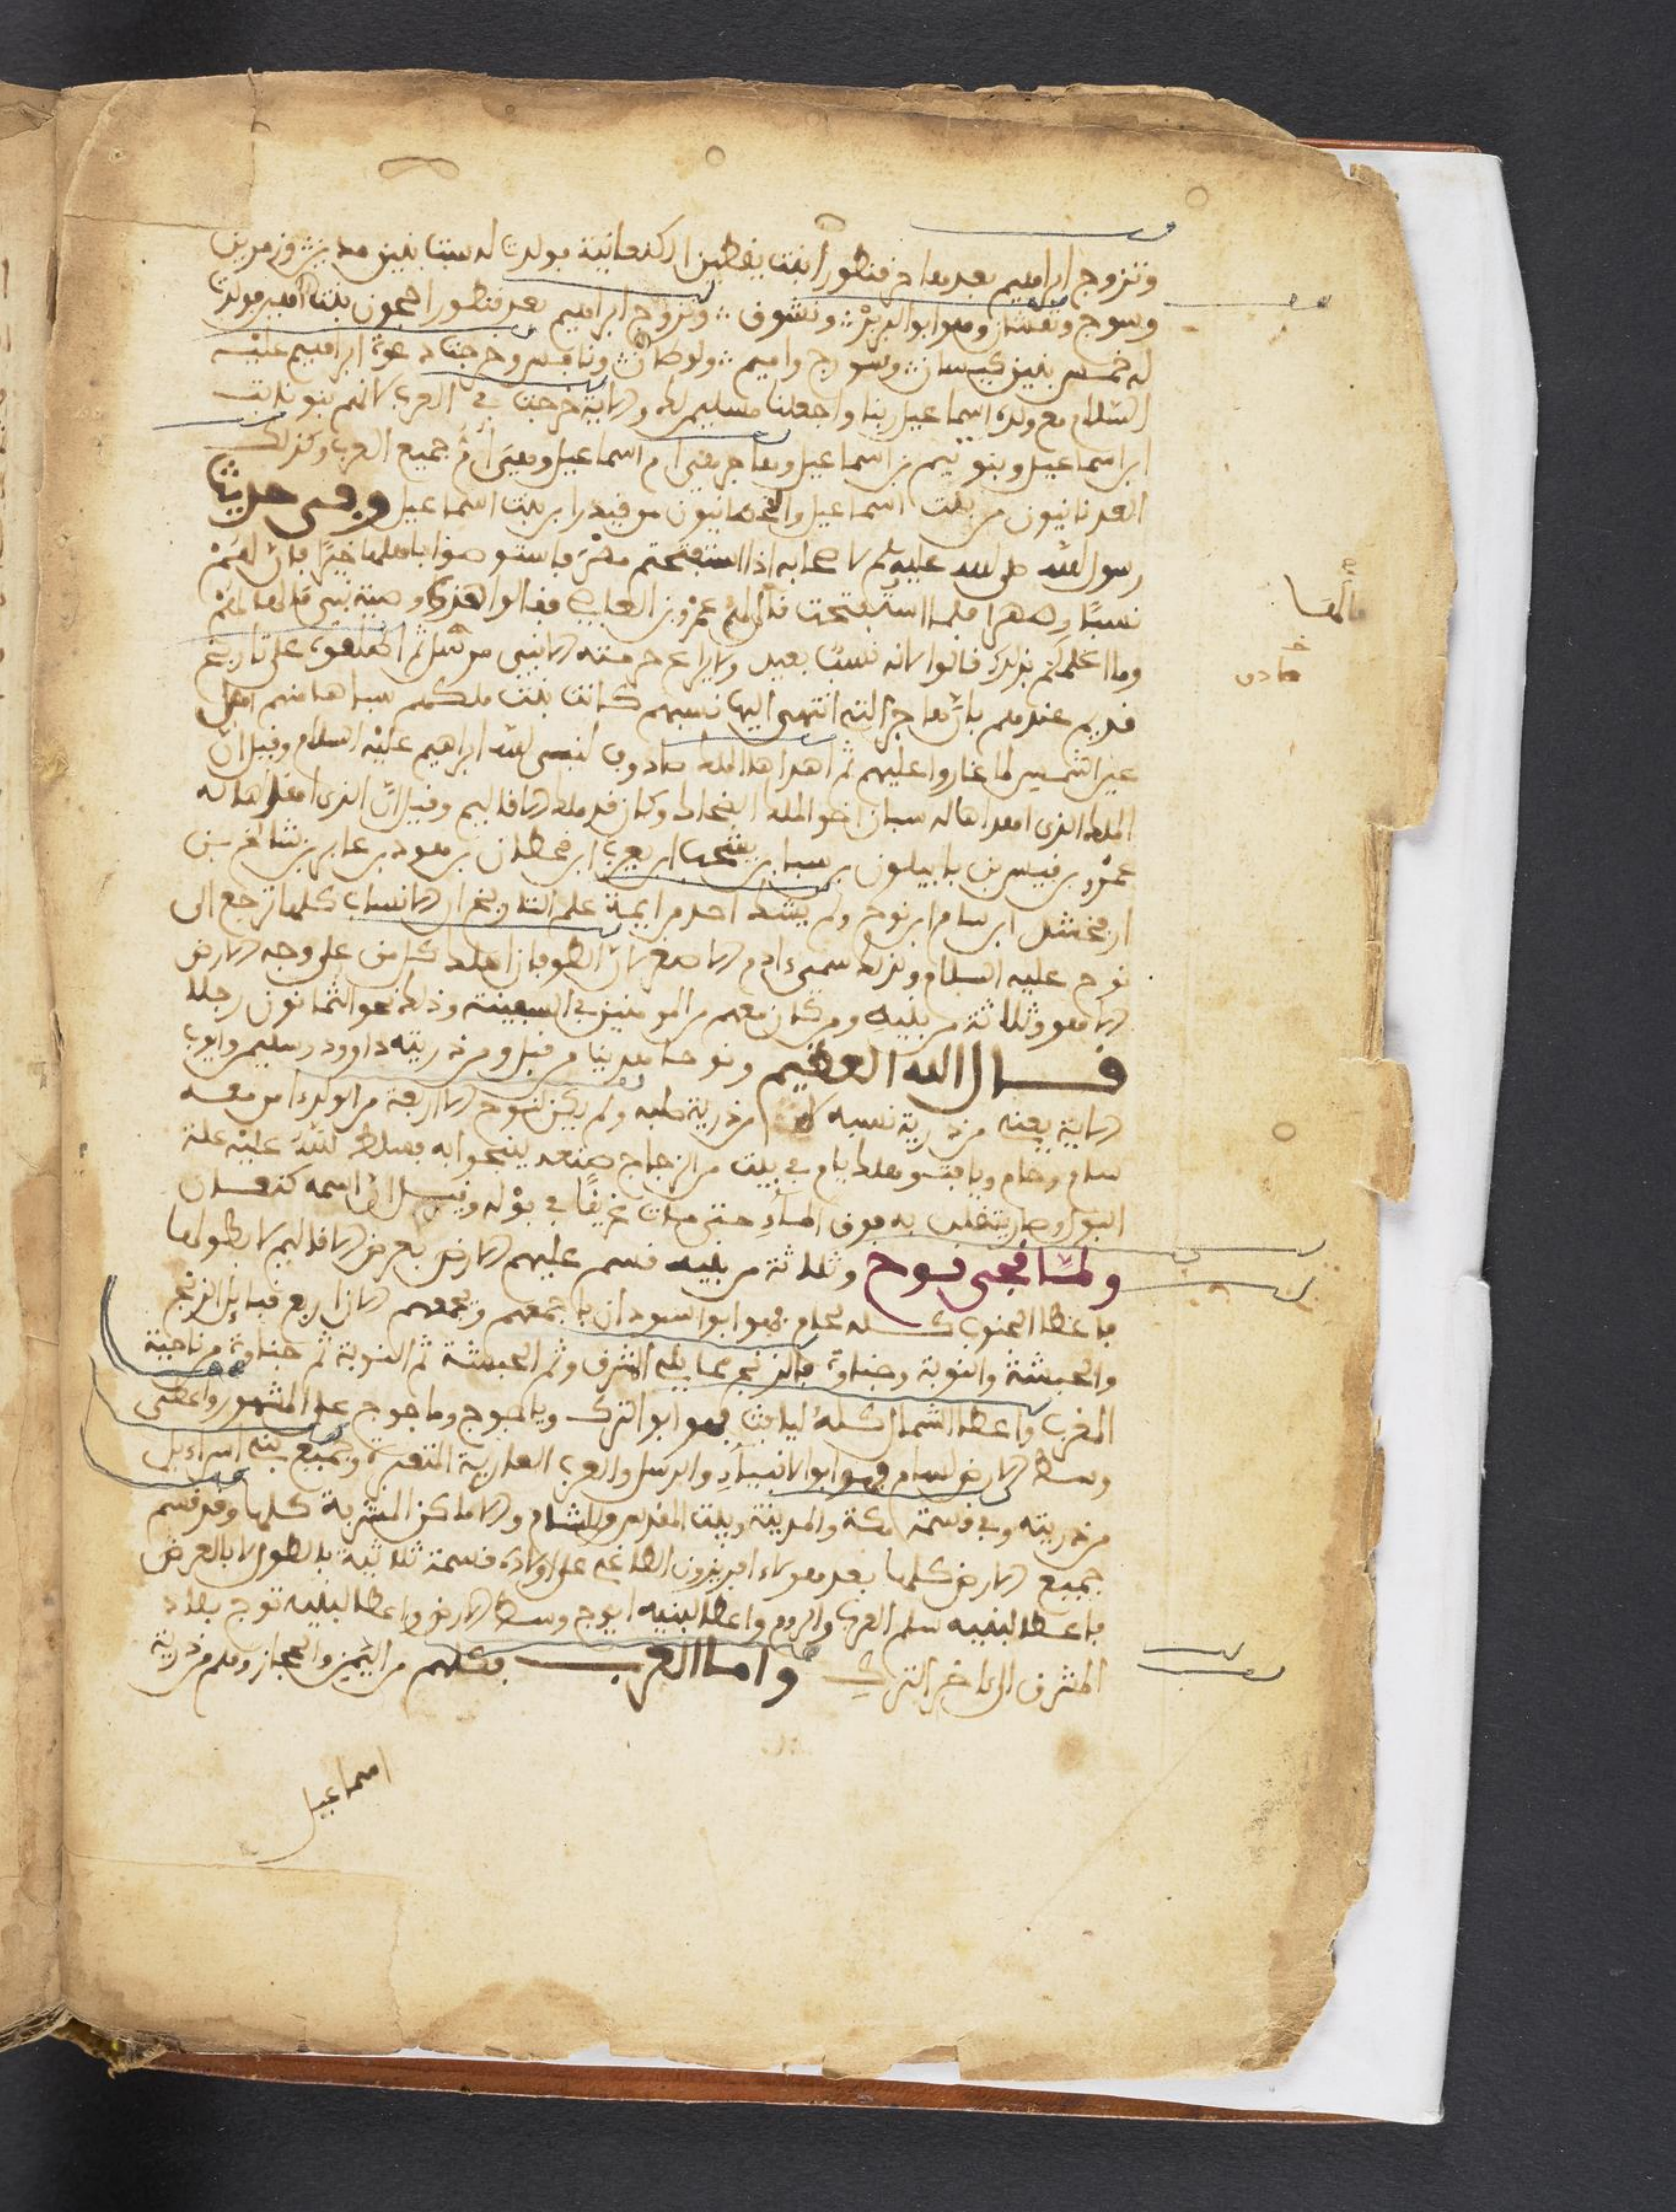 وتزوج ابراهيم بعدهاجر فنطورا بنت يفطين الكنعانية فولدت له ستة بنين مدين وزمرين
وسوج ونفشان وهو ابو البربر ونشوف وتزوج ابراهيم بعد فنطورا حجون بنت اهيب فولدت
له خمس بنين كيسان وسورج واميم ولوطان ونافس وخرجت دعوة ابراهيم عليه
السلام مع ولده اسماعيل ربنا واجعلنا مسلمين لك والاية خرجت في العرب لانهم بنو نابت
ابن اسماعيل وبنو تيم بن اسماعيل وهاجر هي ام اسماعيل وهي ام جميع العرب وكذلك
العدنانيون من نابت اسماعيل والقحطانيون من قيدرا بن بنت اسماعيل وفي حديث
رسول الله صلى الله عليه وسلم لاصحابه اذا استفتحتم مصر فاستوصوا باهلها خيرا فان لهم
نسبا وصهرا فلما استفتحت قال لهم عمرو بن العاص فقالوا هذه وصية نبي قال لهم
وما اعلمكم بذلك قالوا لانه نسب بعيد ولا يراعي حرمته الا نبي مرسل ثم اطلعوه على تاريخ
قديم عندهم بان هاجر التي انتهى اليها نسبهم كانت بنت ملكهم سباها منهم اهل
عين الشمس لما غاروا عليهم ثم اهداها الملك صادوف لنبي الله ابراهيم عليه السلام وقيل ان
الملك الذي اهداها له سنان اخو الملك الضحاك وكان قد ملك الاقاليم وقيل ان الذي اهداها له
عمرو بن قيس بن بابيلون بن سبا بن يشجب بن يعرب ابن قحطان بن هود بن عابر بن شالخ بن
ارفخشد ابن سام ابن نوح ولم يشك احد من ايمة علم التاريخ ان الانساب كلها ترجع الى
نوح عليه السلام وبذلك سمي ادم الاصغر لان الطوفان اهلك كل من على وجه الارض
الا هو وثلاثة من بنيه ومن كان معهم من المومنين في السفينة وذلك نحو الثمانون رجلا
قال الله العظيم ونوحا هدينا من قبل ومن ذريته داوود وسليمن وايوب
الاية يعني من ذرية نسبه من ذرية صلبه ولم يكن لنوح الا اربعة من الولد امن معه
سام وحام ويافث وهلك يام في بيت من الزجاج صنعه لينجوا به فسلط الله عليه علة
البول وصار يتقلب به فوق الماء حتى مات غريقا في بوله وقيل ان اسمه كنعان
ولما نجى نوح وثلاثة من بنيه قسم عليهم الارض بعرض الاقاليم لا بطولها
فاعطا الجنوب كله لحام فهو ابو السودان باجمعهم وجمعهم الان اربع قبايل الزنج
والحبشة والنوبة وجناوة فالزنج مما يلي الشرق وثم الحبشة ثم النوبة ثم جناوة من ناحية
المغرب واعطا الشمال كله ليافث فهو ابو الترك وياجوج وماجوج على المشهور واعطى
وسط الارض لسام فهو ابو الانبياء والرسل والعرب العاربة المتعربة وجميع بني اسراءيل
من ذريته وفي قسمة مكة والمدينة وبيت المقدس والشام والاماكن المشرفة كلها وقد قسم
جميع الارض كلها بعد هولاء افريدون الطاغي على اولاده قسمة ثلاثية بالطول لا بالعرض
فاعطا لبنيه سلم الغرب والروم واعطا لبنيه ايرج وسط الارض واعطا لبنيه توج بلاد
المشرق الى اخر الترك واما العرب فكلهم من اليمن والحجاز وهم من ذرية
اسماعيل